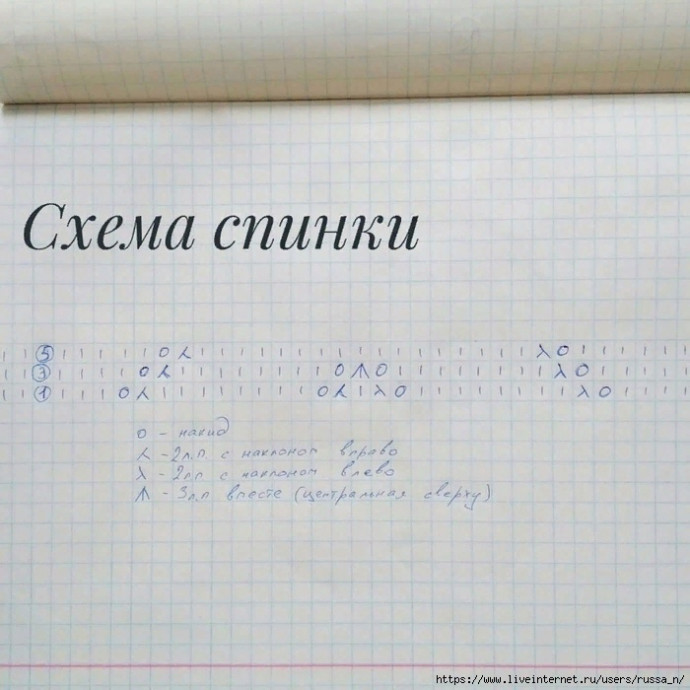 Схема спинки
5 | | | | | O ⅄ | | | | | | | | | | | | | | | | | λ O | | | | | |
3 | | | | O ⅄ | | | | | | | | O ⩚ O | | | | | | | | λ O | | | | |
1 | | | O ⅄ | | | | | | | | O ⅄ | λ O | | | | | | | | λ O | | | |
O - накид
⅄ - 2л.п. с наклоном вправо
λ - 2л.п. с наклоном влево
⩚ - 3л.п вместе (центральная сверху)
https://www.liveinternet.ru/users/russa_n/